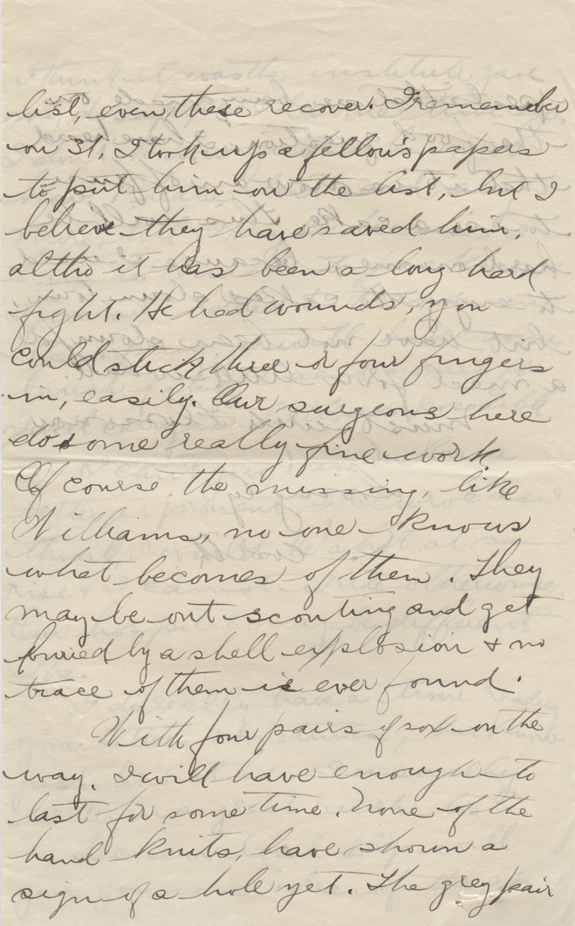 list, even these recover. I remember
on 31, I took up a fellow's papers
to put him on the list, but I
believe they have saved him,
altho it has been a long hard
fight. He had wounds, you
could stick three or four fingers
in, easily. Our surgeons here
do some really fine work.
Of course, the missing, like
Williams, no one knows
what becomes of them. They
may be out scouting and get
buried by a shell explosion & no
trace of them is ever found.
With four pairs of sox on the
way, I will have enough to
last for some time. None of the
hand knits, have shown a
sign of a hole yet. The grey pair